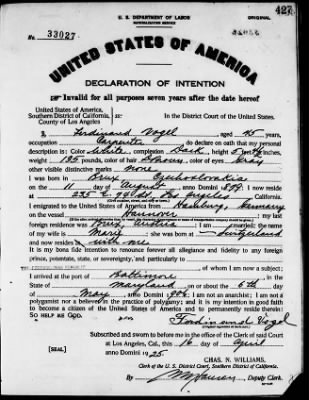 U. S. DEPARTMENT OF LABOR
NATURALIZATION SERVICE
ORIGINAL
427
No. 33027
UNITED STATES OF AMERICA
DECLARATION OF INTENTION
Invalid for all purposes seven years after the date hereof
United States of America,
Southern District of California,
County of Los Angeles
ss:
In the District Court of the United States.
I, Ferdinand Vogel aged 45 years,
occupation Carpenter, do declare on oath that my personal
description is: Color White, complexion Dark, height 5 feet inches,
weight 135 pounds, color of hair Brown, color of eyes Gray
other visible distinctive marks none
I was born in Brux, Czechoslovakia
on the 11 day of August, anno Domini; I now reside
at Los Angeles, California.
I emigrated to the United States of America from Hamburg Germany
on the vessel Hannover; my last
foreign residence was Brux, Austria; I am married; the name
of my wife is Marie; she was born at Switzerland
and now resides at with me
It is my bona fide intention to renounce forever all allegiance and fidelity to any foreign
prince, potentate, state, or sovereignty, and particularly to
of whom I am now a subject;
I arrived at the port of Baltimore, in the
State of Maryland, on or about the 6th day
of May, anno Domini; I am not an anarchist; I am not a
polygamist nor a believer in the practice of polygamy; and it is my intention in good faith
to become a citizen of the United States of America and permanently reside therein:
SO HELP ME GOD.
Ferdinand Vogel
Subscribed and sworn to before me in the office of the Clerk of said Court
at Los Angeles, Cal., this 16 day of April
anno Domini 1925.
[SEAL]
CHAS. N. WILLIAMS,
Clerk of the U. S. District Court, Southern District of California.
By Deputy Clerk.